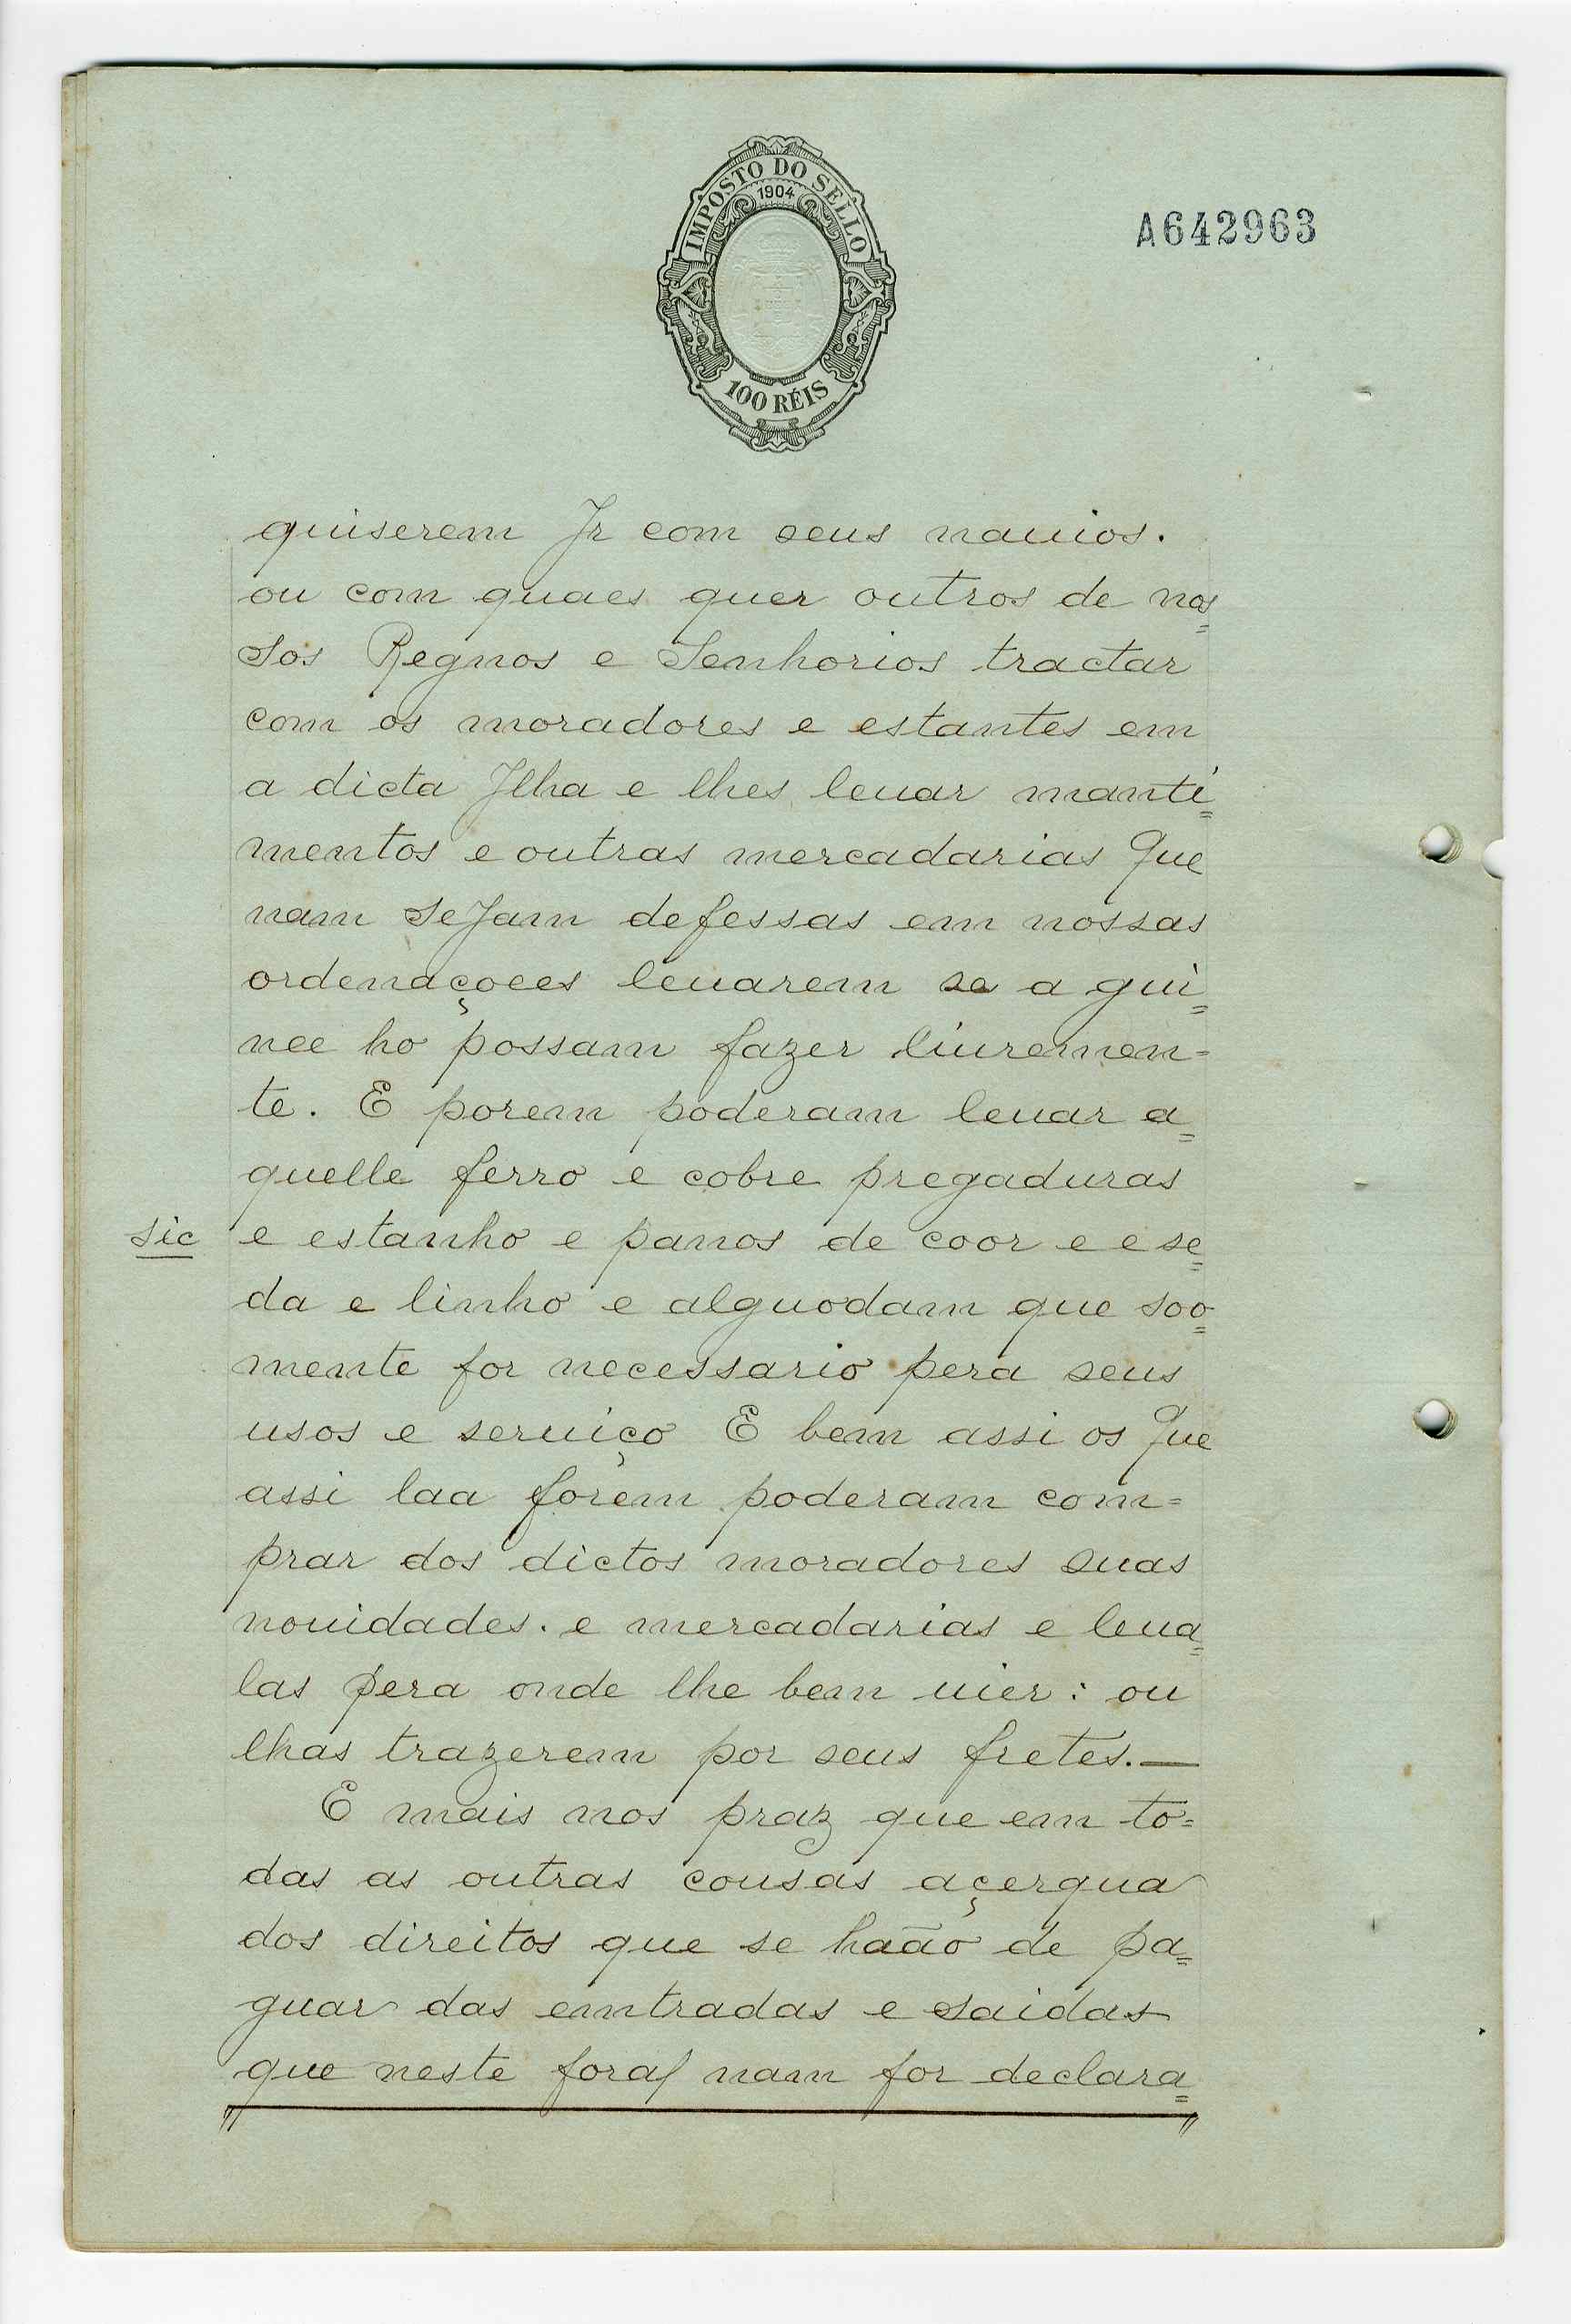 IMPOSTO DO SELLO
1904
100 RÉIS
A642963
quiserem Jr com seus nauios.
ou com quaes quer outros de nos=
sos Regnos e Senhorios tractar
com os moradores e estantes em
a dicta Jlha e lhes leuar manti=
mentos e outras mercadarias Que
nam seJam defessas em nossas
ordenaçoees leuarem se a gui=
nee ho possam fazer liuremen=
te. E porem poderam leuar a=
quelle ferro e cobre pregaduras
sic e estanho e panos de coor e e se=
da e linho e alguodam que soo=
mente for necessario pera seus
usos e seruiço E bem assi os Que
assi laa forem poderam com=
prar dos dictos moradores suas
nouidades. e mercadarias e leua=
las pera onde lhe bem uier: ou
lhas trazerem por seus fretes.—
E mais nos praz que em to=
das as outras cousas açerqua
dos direitos que se haão de pa=
guar das emtradas e saidas
que neste foral nam for declara=